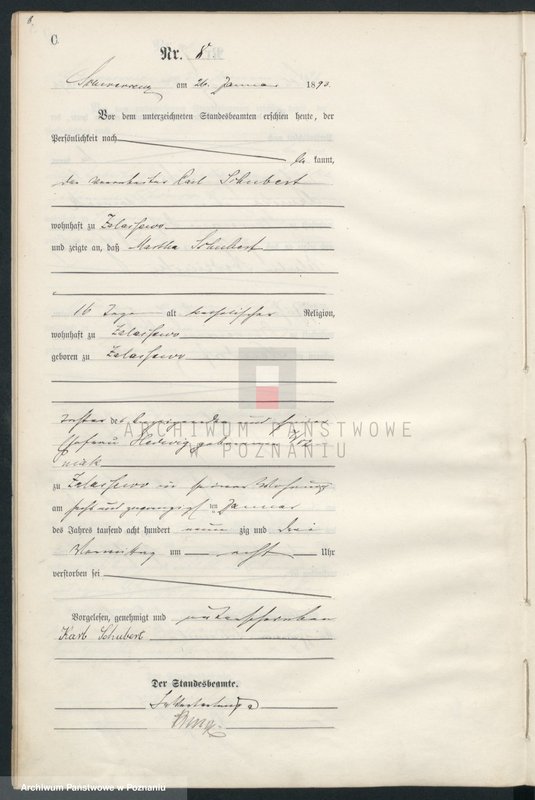 C.
Nr. 8
Schwersenz am 26. Januar 1893.
Vor dem unterzeichneten Standesbeamten erschien heute, der
Persönlichkeit nach
be kannt,
der Carl Schubert
wohnhaft zu Zelasewo
und zeigte an, daß Martha Schubert
16 Tage alt katholischer Religion,
wohnhaft zu Zelasewo
geboren zu Zelasewo
Tochter des Anzeigenden und seiner
Ehefrau Hedwig geborenen
zu Zelasewo in seiner Wohnung
am sechs und zwanzigsten Januar
des Jahres tausend acht hundert neun zig und drei
Vormittag um acht Uhr
verstorben sei
Vorgelesen, genehmigt und unterschrieben
Karl Schubert
Der Standesbeamte.
In Vertretung
ARCHIWUM PAŃSTWOWE
W POZNANIU
Archiwum Państwowe w Poznaniu